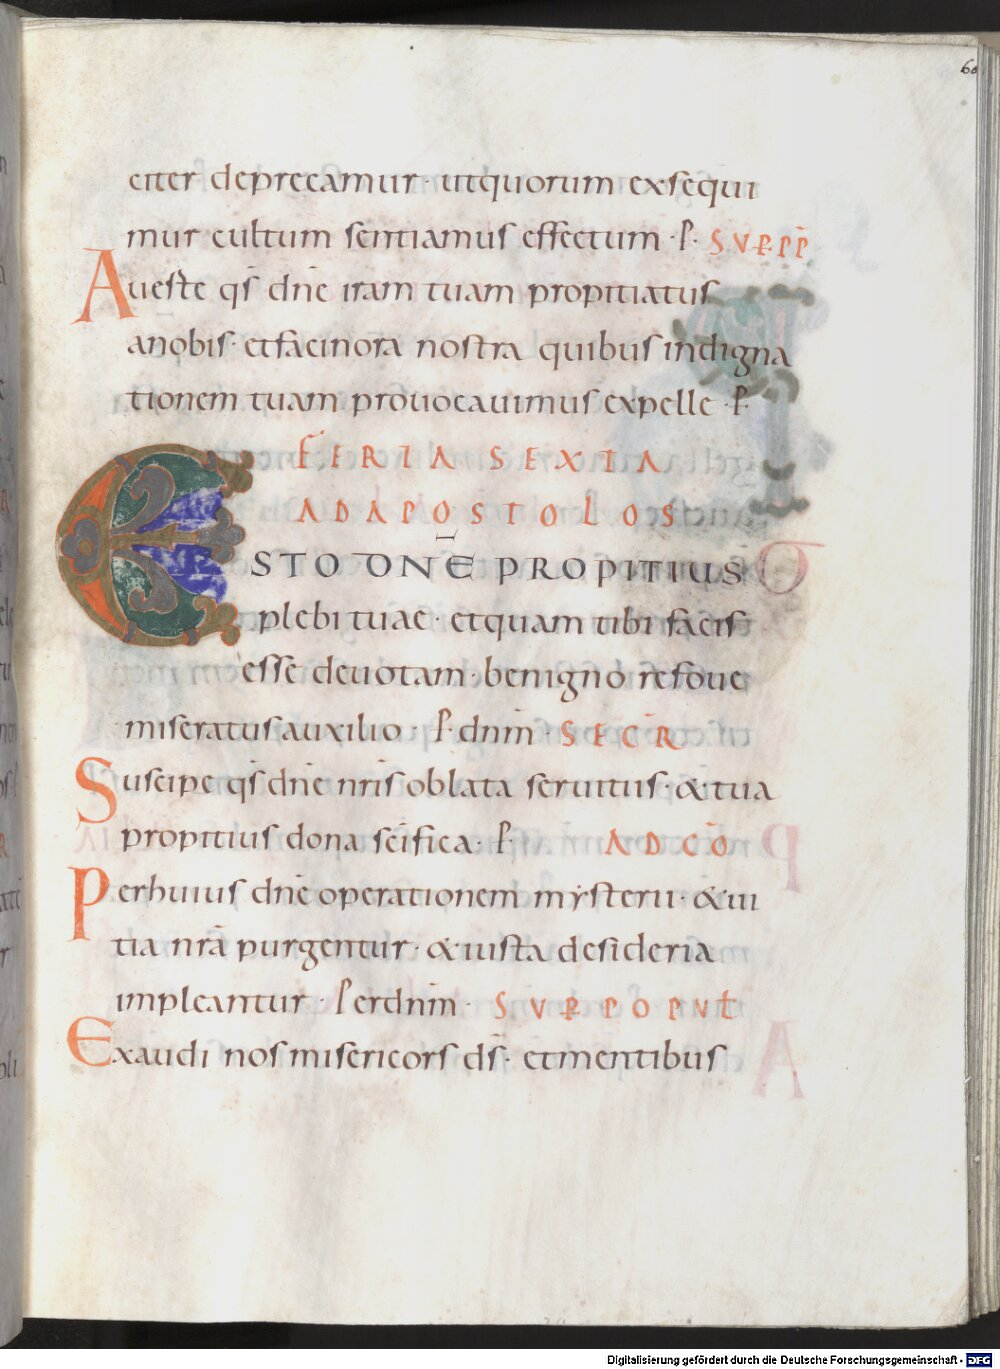 60
citer deprecamur· utquorum exsequi
mur cultum sentiamus effectum· P· SUP̄· PP̄
Aueste qs̄ dn̄e iram tuam propitiatus
anobis· etfacinora nostra quibus indigna
tionem tuam prouocauimus expelle· P·
FERIA SEXTA
AD APOSTOLOS
ESTO DN̄E PROPITIUS
plebi tuae· etquam tibi facis
esse deuotam· benigno refoue
miseratus auxilio· P· dnm̄· SECR̄
Suscipe qs̄ dn̄e nr̄is oblata seruitus· & tua
propitius dona sc̄ifica· P· AD CŌ
Perhuius dn̄e operationem mysterii· & ui
tia nr̄a purgentur· & iusta desideria
impleantur· Perdnm̄· SUP̄ POPUL
Exaudi nos misericors ds̄· etmentibus
Digitalisierung gefördert durch die Deutsche Forschungsgemeinschaft - DFG